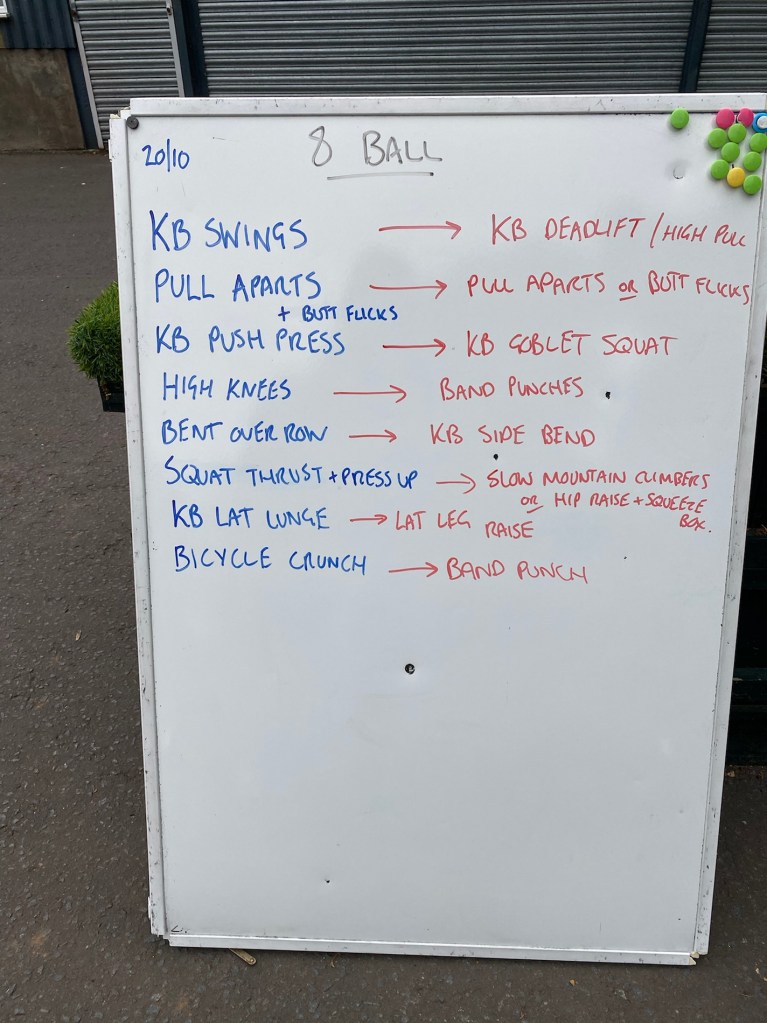 20/10 8 BALL
KB SWINGS → KB DEADLIFT / HIGH PULL
PULL APARTS → PULL APARTS OR BUTT FLICKS
+ BUTT FLICKS
KB PUSH PRESS → KB GOBLET SQUAT
HIGH KNEES → BAND PUNCHES
BENT OVER ROW → KB SIDE BEND
SQUAT THRUST + PRESS UP → SLOW MOUNTAIN CLIMBERS
OR HIP RAISE + SQUEEZE
BOX.
KB LAT LUNGE → LAT LEG RAISE
BICYCLE CRUNCH → BAND PUNCH